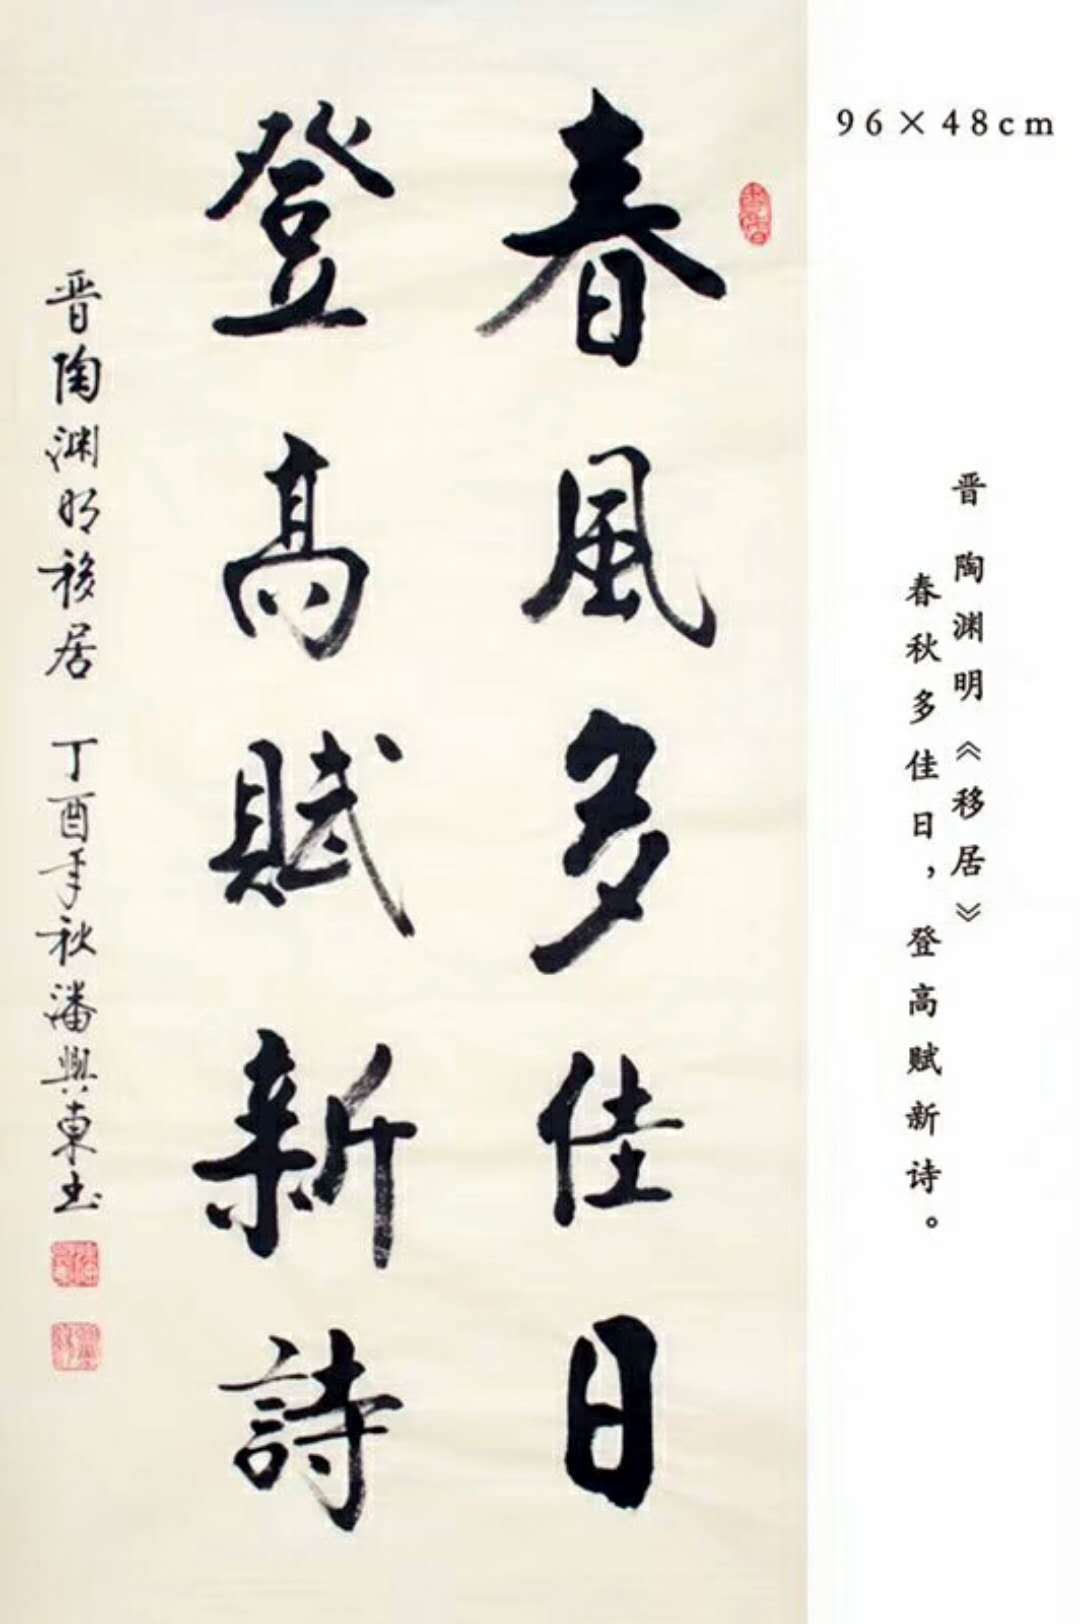 96×48cm
晋 陶渊明《移居》
春秋多佳日，登高赋新诗。
春風多佳日
登高賦新詩
晋陶渊明移居 丁酉年秋潘興東书